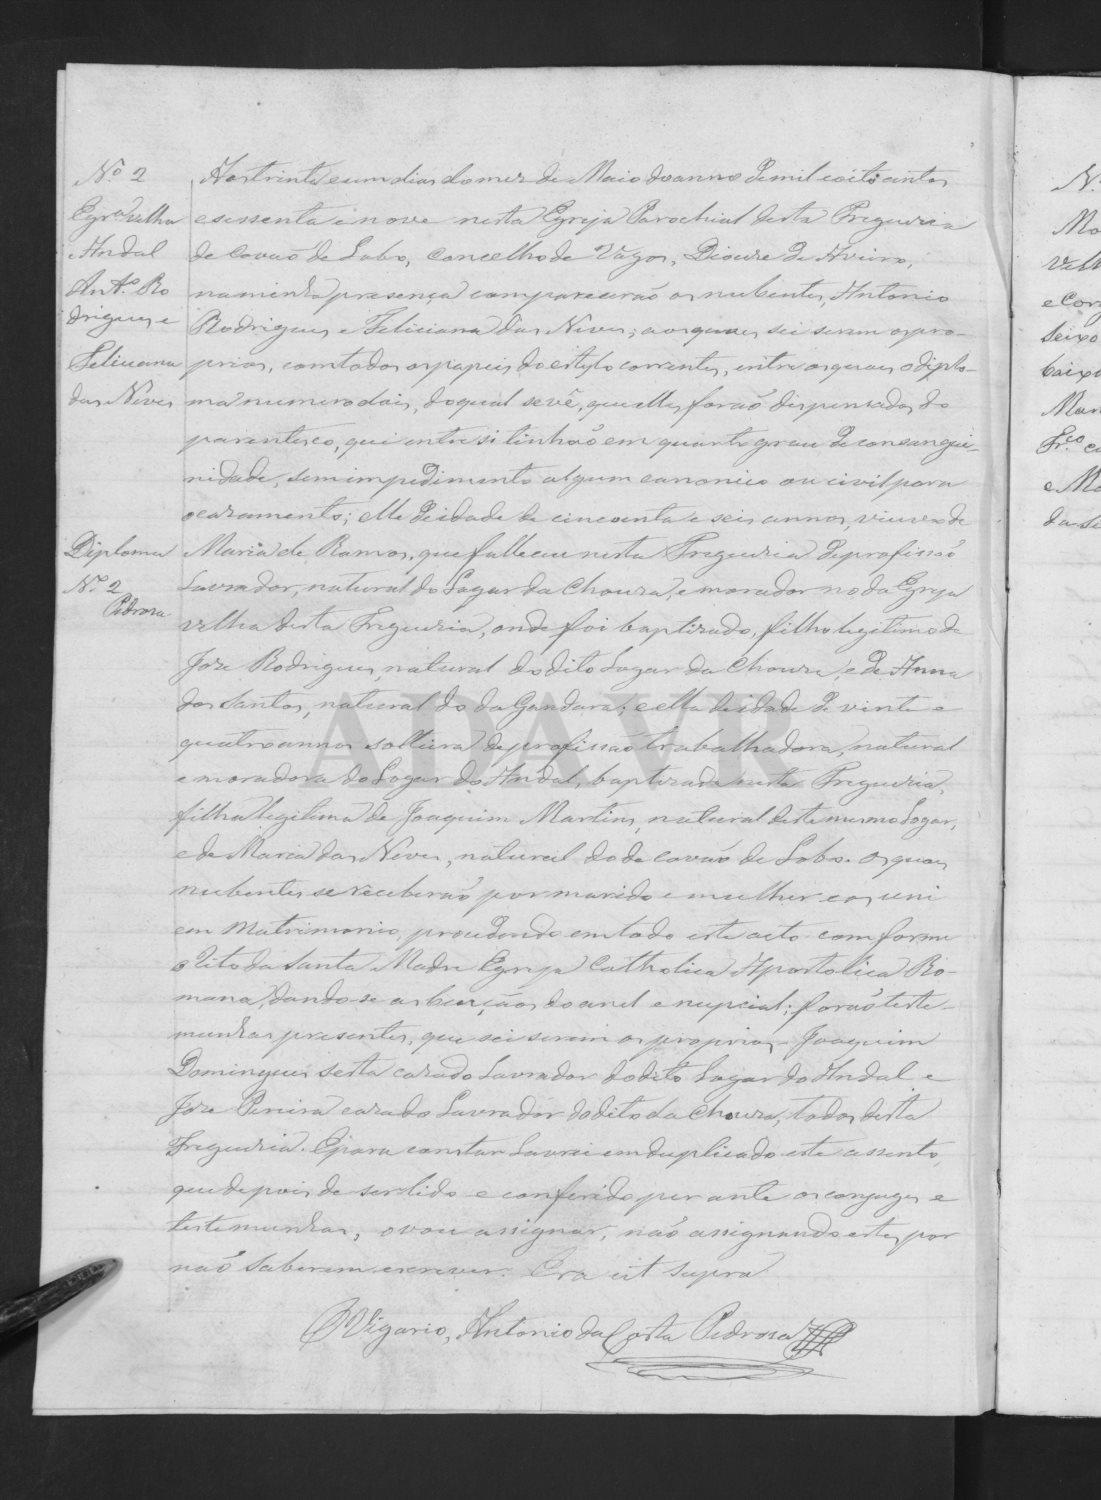 Nº 2
Egrª velha
Andal
Antº Ro
drigues e
Feliciana
das Neves
Diploma
Nº 2
Pedrosa
Aos trinta e um dias do mez de Maio do anno de mil e oito centos
e sessenta e nove nesta Egreja Parochial desta Freguezia
de Covão de Lobo, Concelho de Vagos, Diocese de Aveiro,
na minha presença comparecerão os nubentes, Antonio
Rodrigues e Feliciana das Neves; aos quaes sei serem os pro-
prios, com todos os papeis do estylo correntes, entre os quaes o diplo-
ma numero dois, do qual se vê, que elles forão dispensados do
parentesco, que entre si tinhão em quarto grau de consangui-
nidade, sem impedimento algum canonico ou civil para
o casamento; elle de idade de cincoenta e seis annos, viuvo de
Maria de Ramos, que falleceu nesta Freguezia de profissão
Lavrador, natural do Logar da Chouza, e morador no da Egreja
velha desta Freguezia, onde foi baptizado, filho legitimo de
Joze Rodrigues, natural do dito Logar da Chouza, e de Anna
dos Santos, natural do da Gandara; e ella de idade de vinte e
quatro annos solteira de profissão trabalhadora, natural
e moradora do Logar do Andal, baptizada nesta Freguezia,
filha legitima de Joaquim Martins, natural deste mesmo Logar,
e de Maria das Neves, natural do de Covão de Lobo. Os quaes
nubentes se receberão por marido e mulher e os uni
em Matrimonio, procedendo em todo este acto conforme
o Rito da Santa Madre Egreja Catholica Apostolica Ro-
mana, dando-se as bençãos do anel e nupcial; forão teste-
munhas presentes, que sei serem os proprios - Joaquim
Domingues Sesta casado Lavrador do dito Logar do Andal e
Joze Pereira casado Lavrador do dito da Chouza, todos desta
Freguezia. E para constar Lavrei em duplicado este assento,
que depois de ser lido e conferido perante os conjuges e
testemunhas, o vou assignar, não assignando estes por
não saberem escrever. Era ut supra
O Vigario, Antonio da Costa Pedrosa
ADAVR
Nº
Mo
velh
e Cor
Seixo
baixo
Man
Frco
e Ma